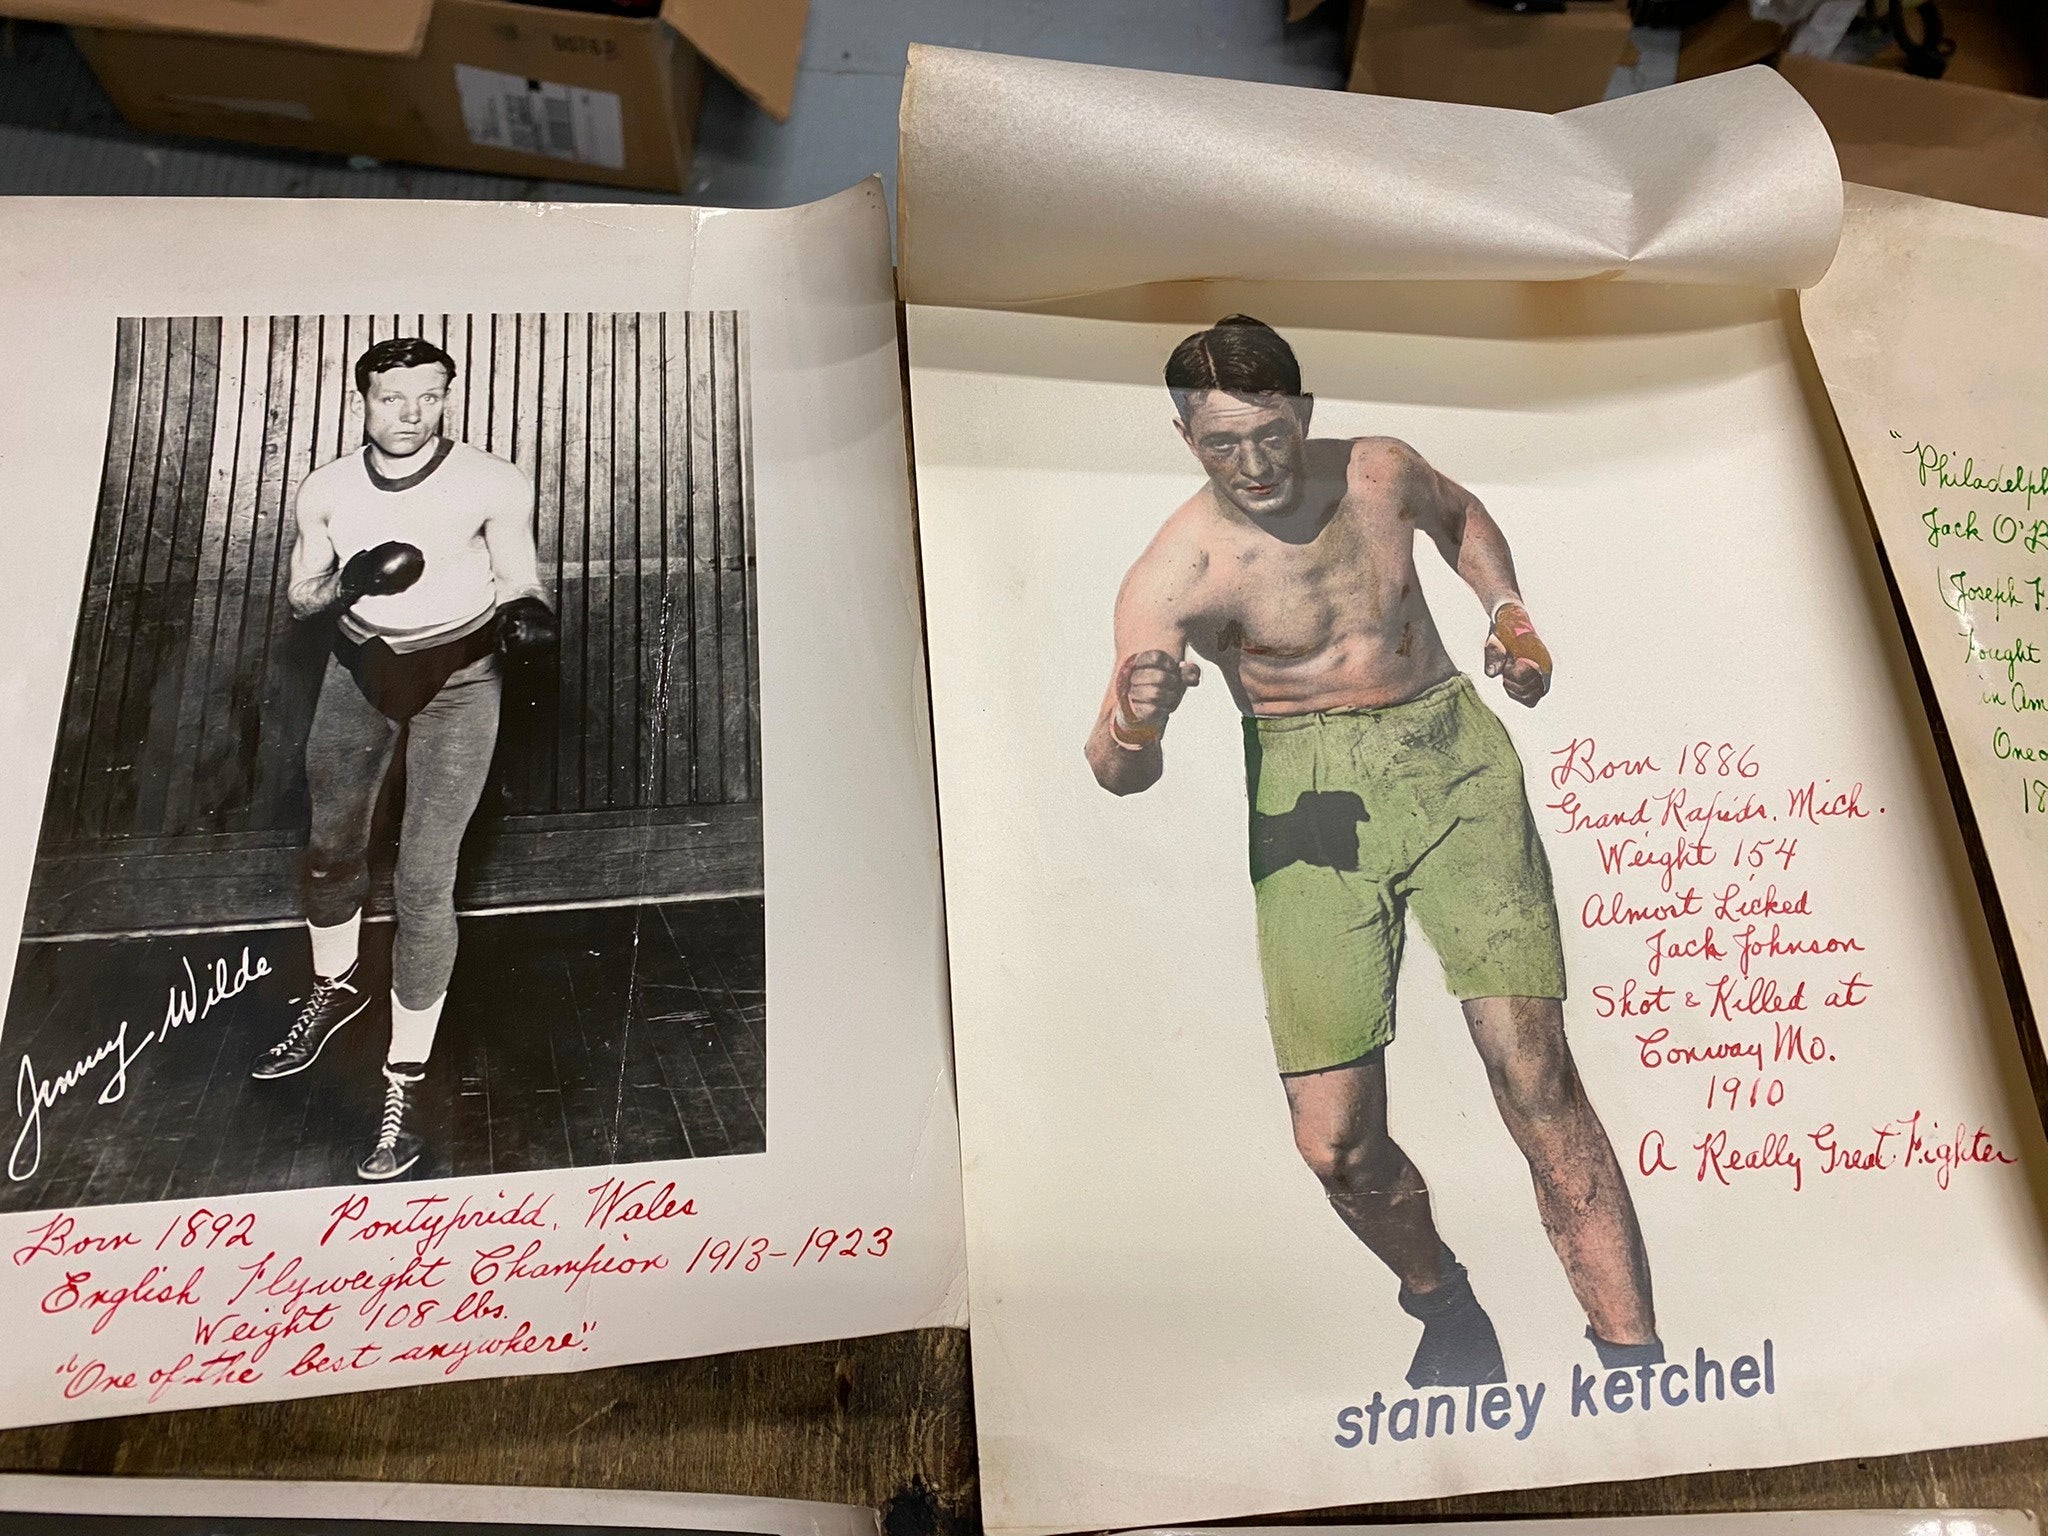 Jimmy Wilde
Born 1892 Pontypridd, Wales
English Flyweight Champion 1913-1923
Weight 108 lbs.
"One of the best anywhere".
Born 1886
Grand Rapids, Mich.
Weight 154
Almost Licked
Jack Johnson
Shot & Killed at
Conway Mo.
1910
A Really Great Fighter
stanley ketchel
"Philadelph
Jack O'B
(Joseph F.
Fought
in Am
One o
18